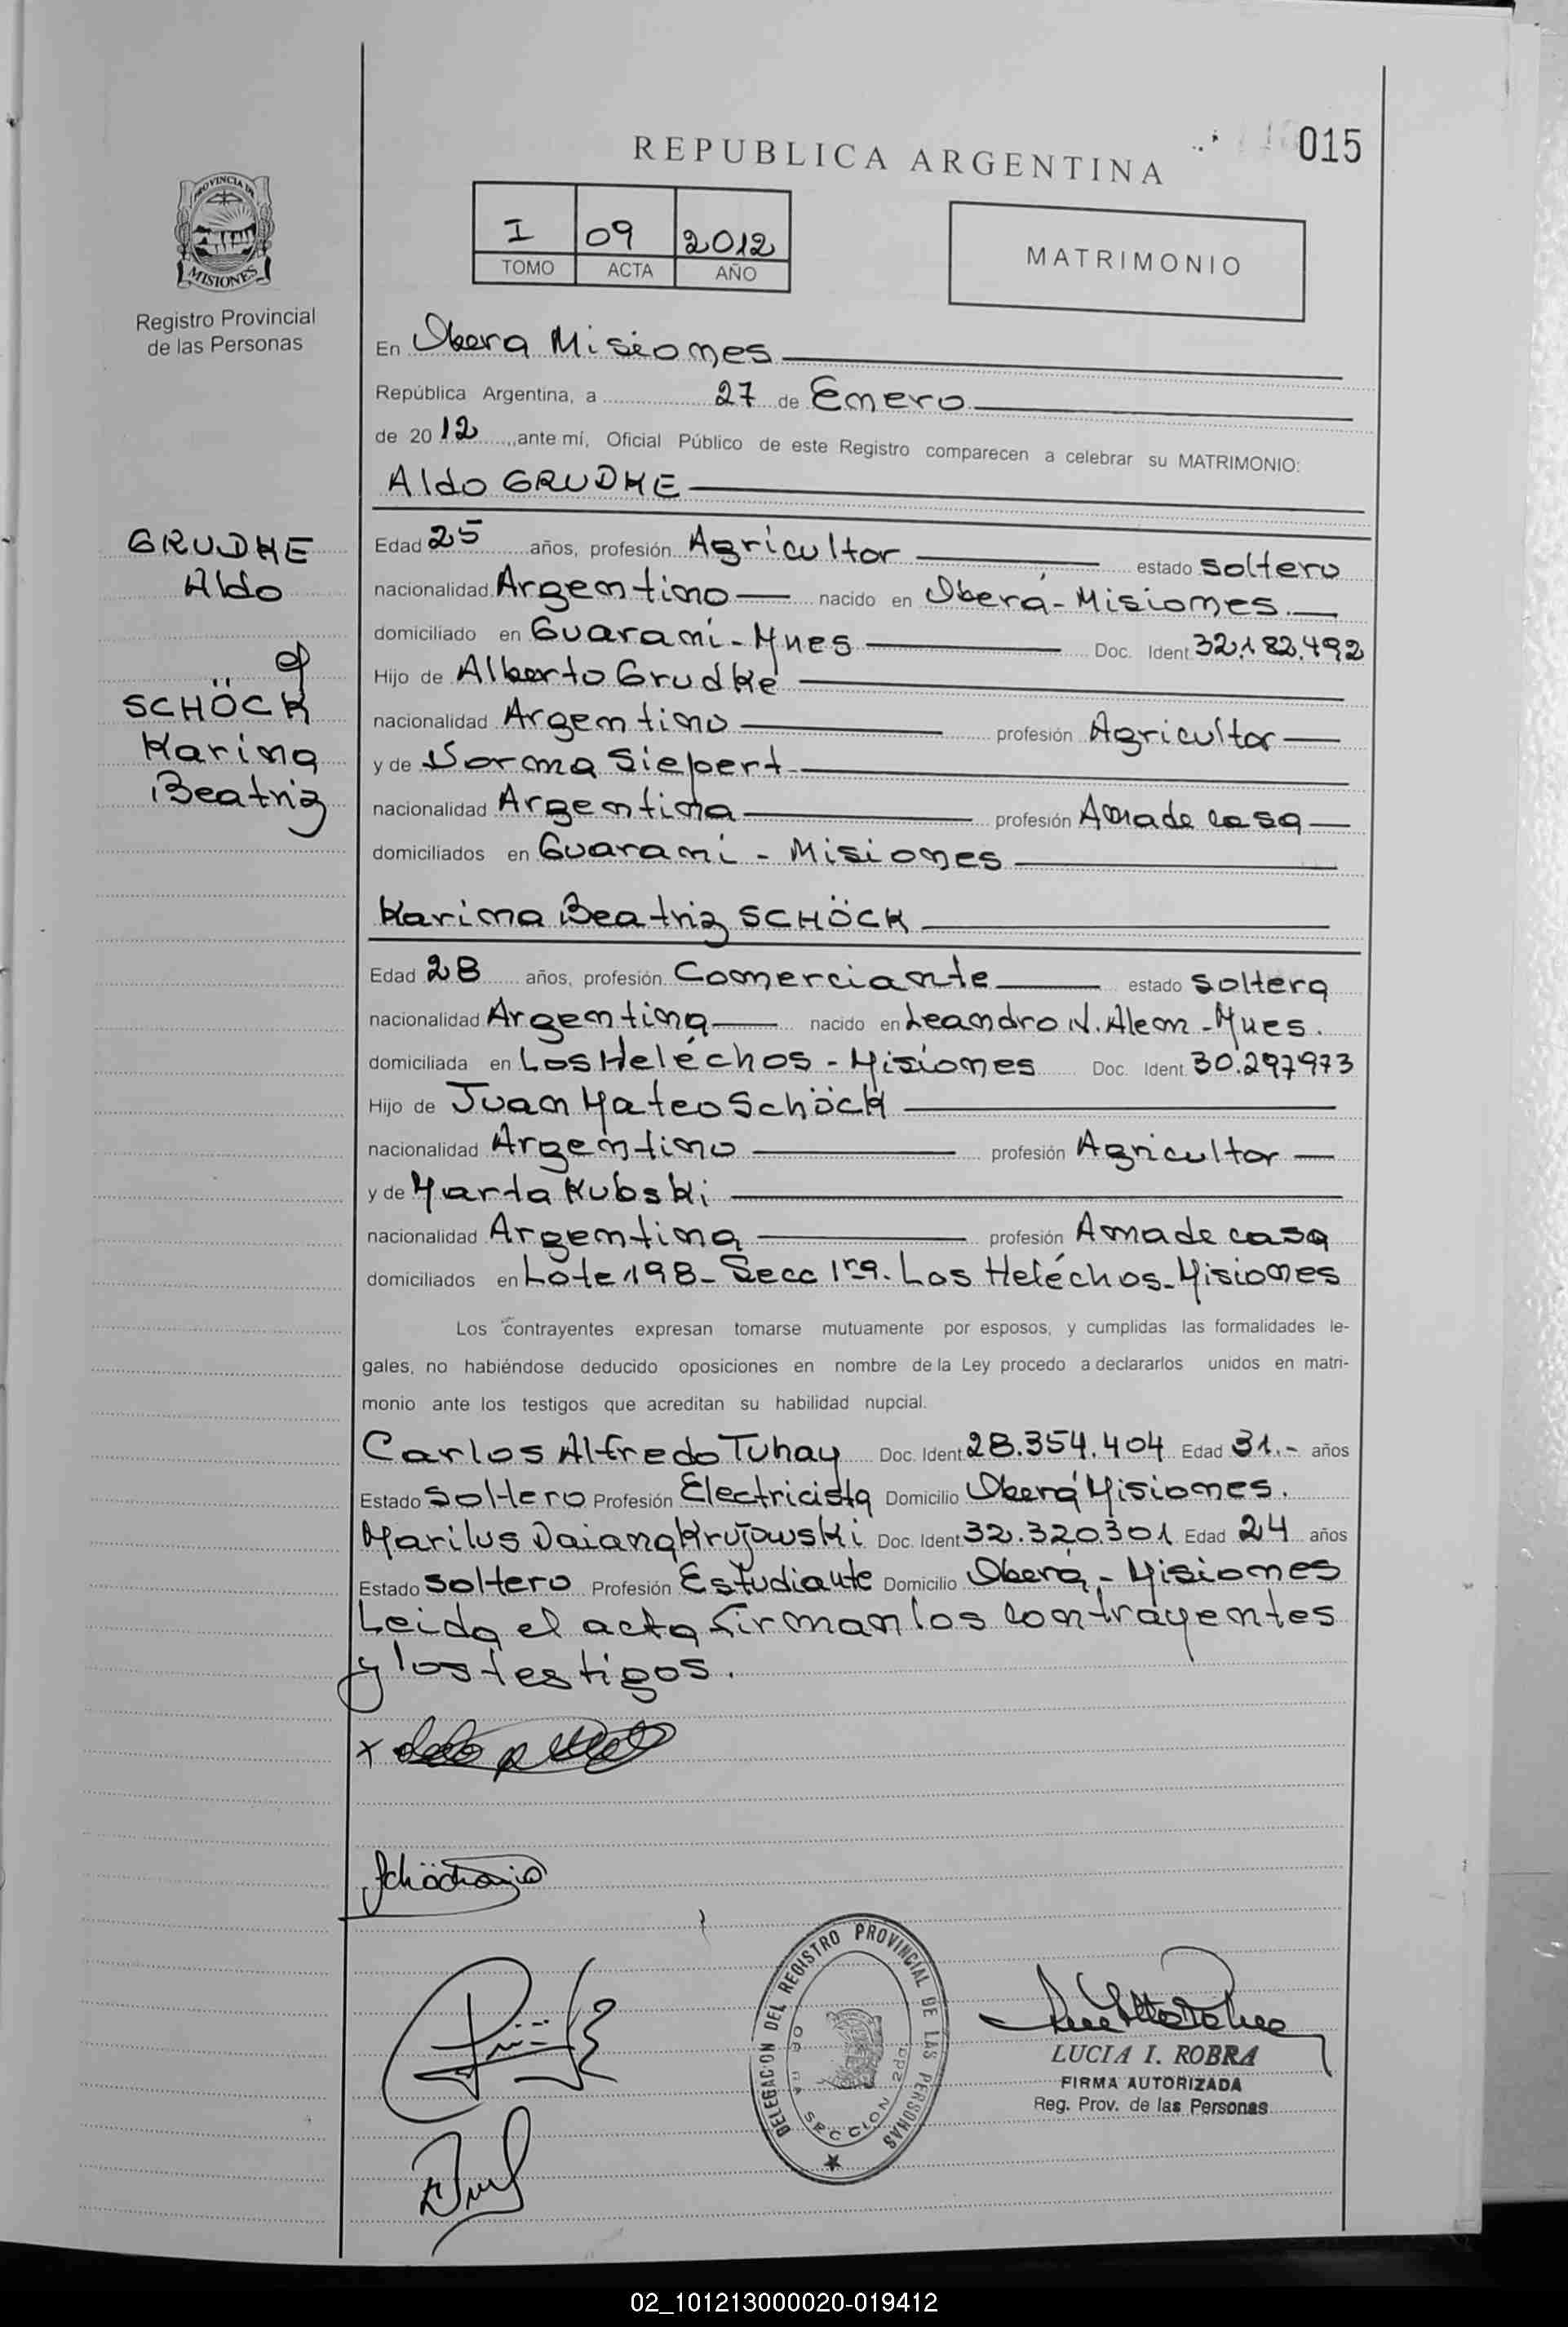 015
REPUBLICA ARGENTINA
PROVINCIA DE
MISIONES
Registro Provincial
de las Personas
I 09 2012
TOMO ACTA AÑO
MATRIMONIO
En Obera Misiones
República Argentina, a 27 de Enero
de 2012, ante mí, Oficial Público de este Registro comparecen a celebrar su MATRIMONIO:
Aldo GRUDKE
GRUDKE
Aldo
SCHÖCK
Karina
Beatriz
Edad 25 años, profesión Agricultor estado soltero
nacionalidad Argentino nacido en Oberá - Misiones
domiciliado en Guaraní - Mnes Doc. Ident 32.182.492
Hijo de Alberto Grudke
nacionalidad Argentino profesión Agricultor
y de Norma Siepert
nacionalidad Argentina profesión Ama de casa
domiciliados en Guaraní - Misiones
Karina Beatriz SCHÖCK
Edad 28 años, profesión Comerciante estado soltera
nacionalidad Argentina nacido en Leandro N. Alem - Mnes.
domiciliada en Los Heléchos - Misiones Doc. Ident. 30.297973
Hijo de Juan Mateo Schöck
nacionalidad Argentino profesión Agricultor
y de Marta Kubski
nacionalidad Argentina profesión Ama de casa
domiciliados en Lote 198 - Secc 1ra. Los Heléchos - Misiones
Los contrayentes expresan tomarse mutuamente por esposos, y cumplidas las formalidades le-
gales, no habiéndose deducido oposiciones en nombre de la Ley procedo a declararlos unidos en matri-
monio ante los testigos que acreditan su habilidad nupcial.
Carlos Alfredo Tuhay Doc. Ident. 28.354.404 Edad 31.- años
Estado Soltero Profesión Electricista Domicilio Oberá Misiones.
Marilus Daiana Krujowski Doc. Ident. 32.320.301 Edad 24 años
Estado soltero Profesión Estudiante Domicilio Oberá - Misiones
Leida el acta firman los contrayentes
y los testigos.
DELEGACION DEL REGISTRO PROVINCIAL DE LAS PERSONAS
SECCION 2da
LUCIA I. ROBRA
FIRMA AUTORIZADA
Reg. Prov. de las Personas
02_101213000020-019412